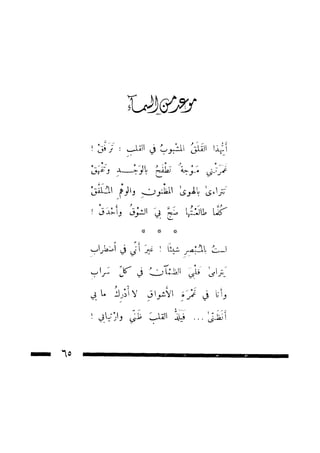 موعد من السماء
أيُّهذا القلَقُ المشبوبُ في القلبِ : تَرَفَّقْ !
غمرَتْني مَوْجةٌ تَطْفَحُ بالوَجْدِ وتَفْهَقْ
تتراءىٰ بالهوىٰ المظنونِ والوهْمِ المُلَفَّقْ
كلّما طالَعْتُها ضَجَّ بيَ الشوْقُ وأَحْدَقْ !
* * *
لستُ بالمُبْصِرِ شيئًا ! غيرَ أنّي في اضطرابِ
يَتراءىٰ قلبيَ الظمآنُ في كلِّ سَرابِ
وأنا في غَمْرَةِ الأشواقِ لا أُدْرِكُ ما بي
أتَظَنّىٰ ... فيَلَذُّ القلبَ ظَنّي وارْتيابي !
٦٥